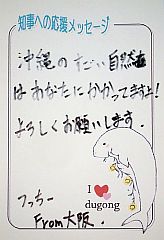 知事への応援メッセージ
沖縄のすごい自然
はあなたにかかってますよ!
よろしくお願いします.
I ♥
dugong
フっちー
From大阪.